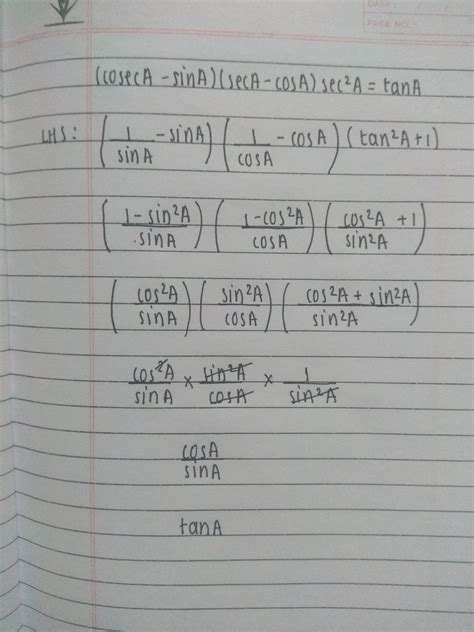 DATE: / /
PAGE NO.:
(cosecA - sinA)(secA - cosA) sec²A = tanA
LHS: (1/sinA - sinA) (1/cosA - cosA) (tan²A + 1)
((1 - sin²A)/sinA) ((1 - cos²A)/cosA) (cos²A/sin²A + 1)
(cos²A/sinA) (sin²A/cosA) ((cos²A + sin²A)/sin²A)
cos²A/sinA × sin²A/cosA × 1/sin²A
cosA/sinA
tanA